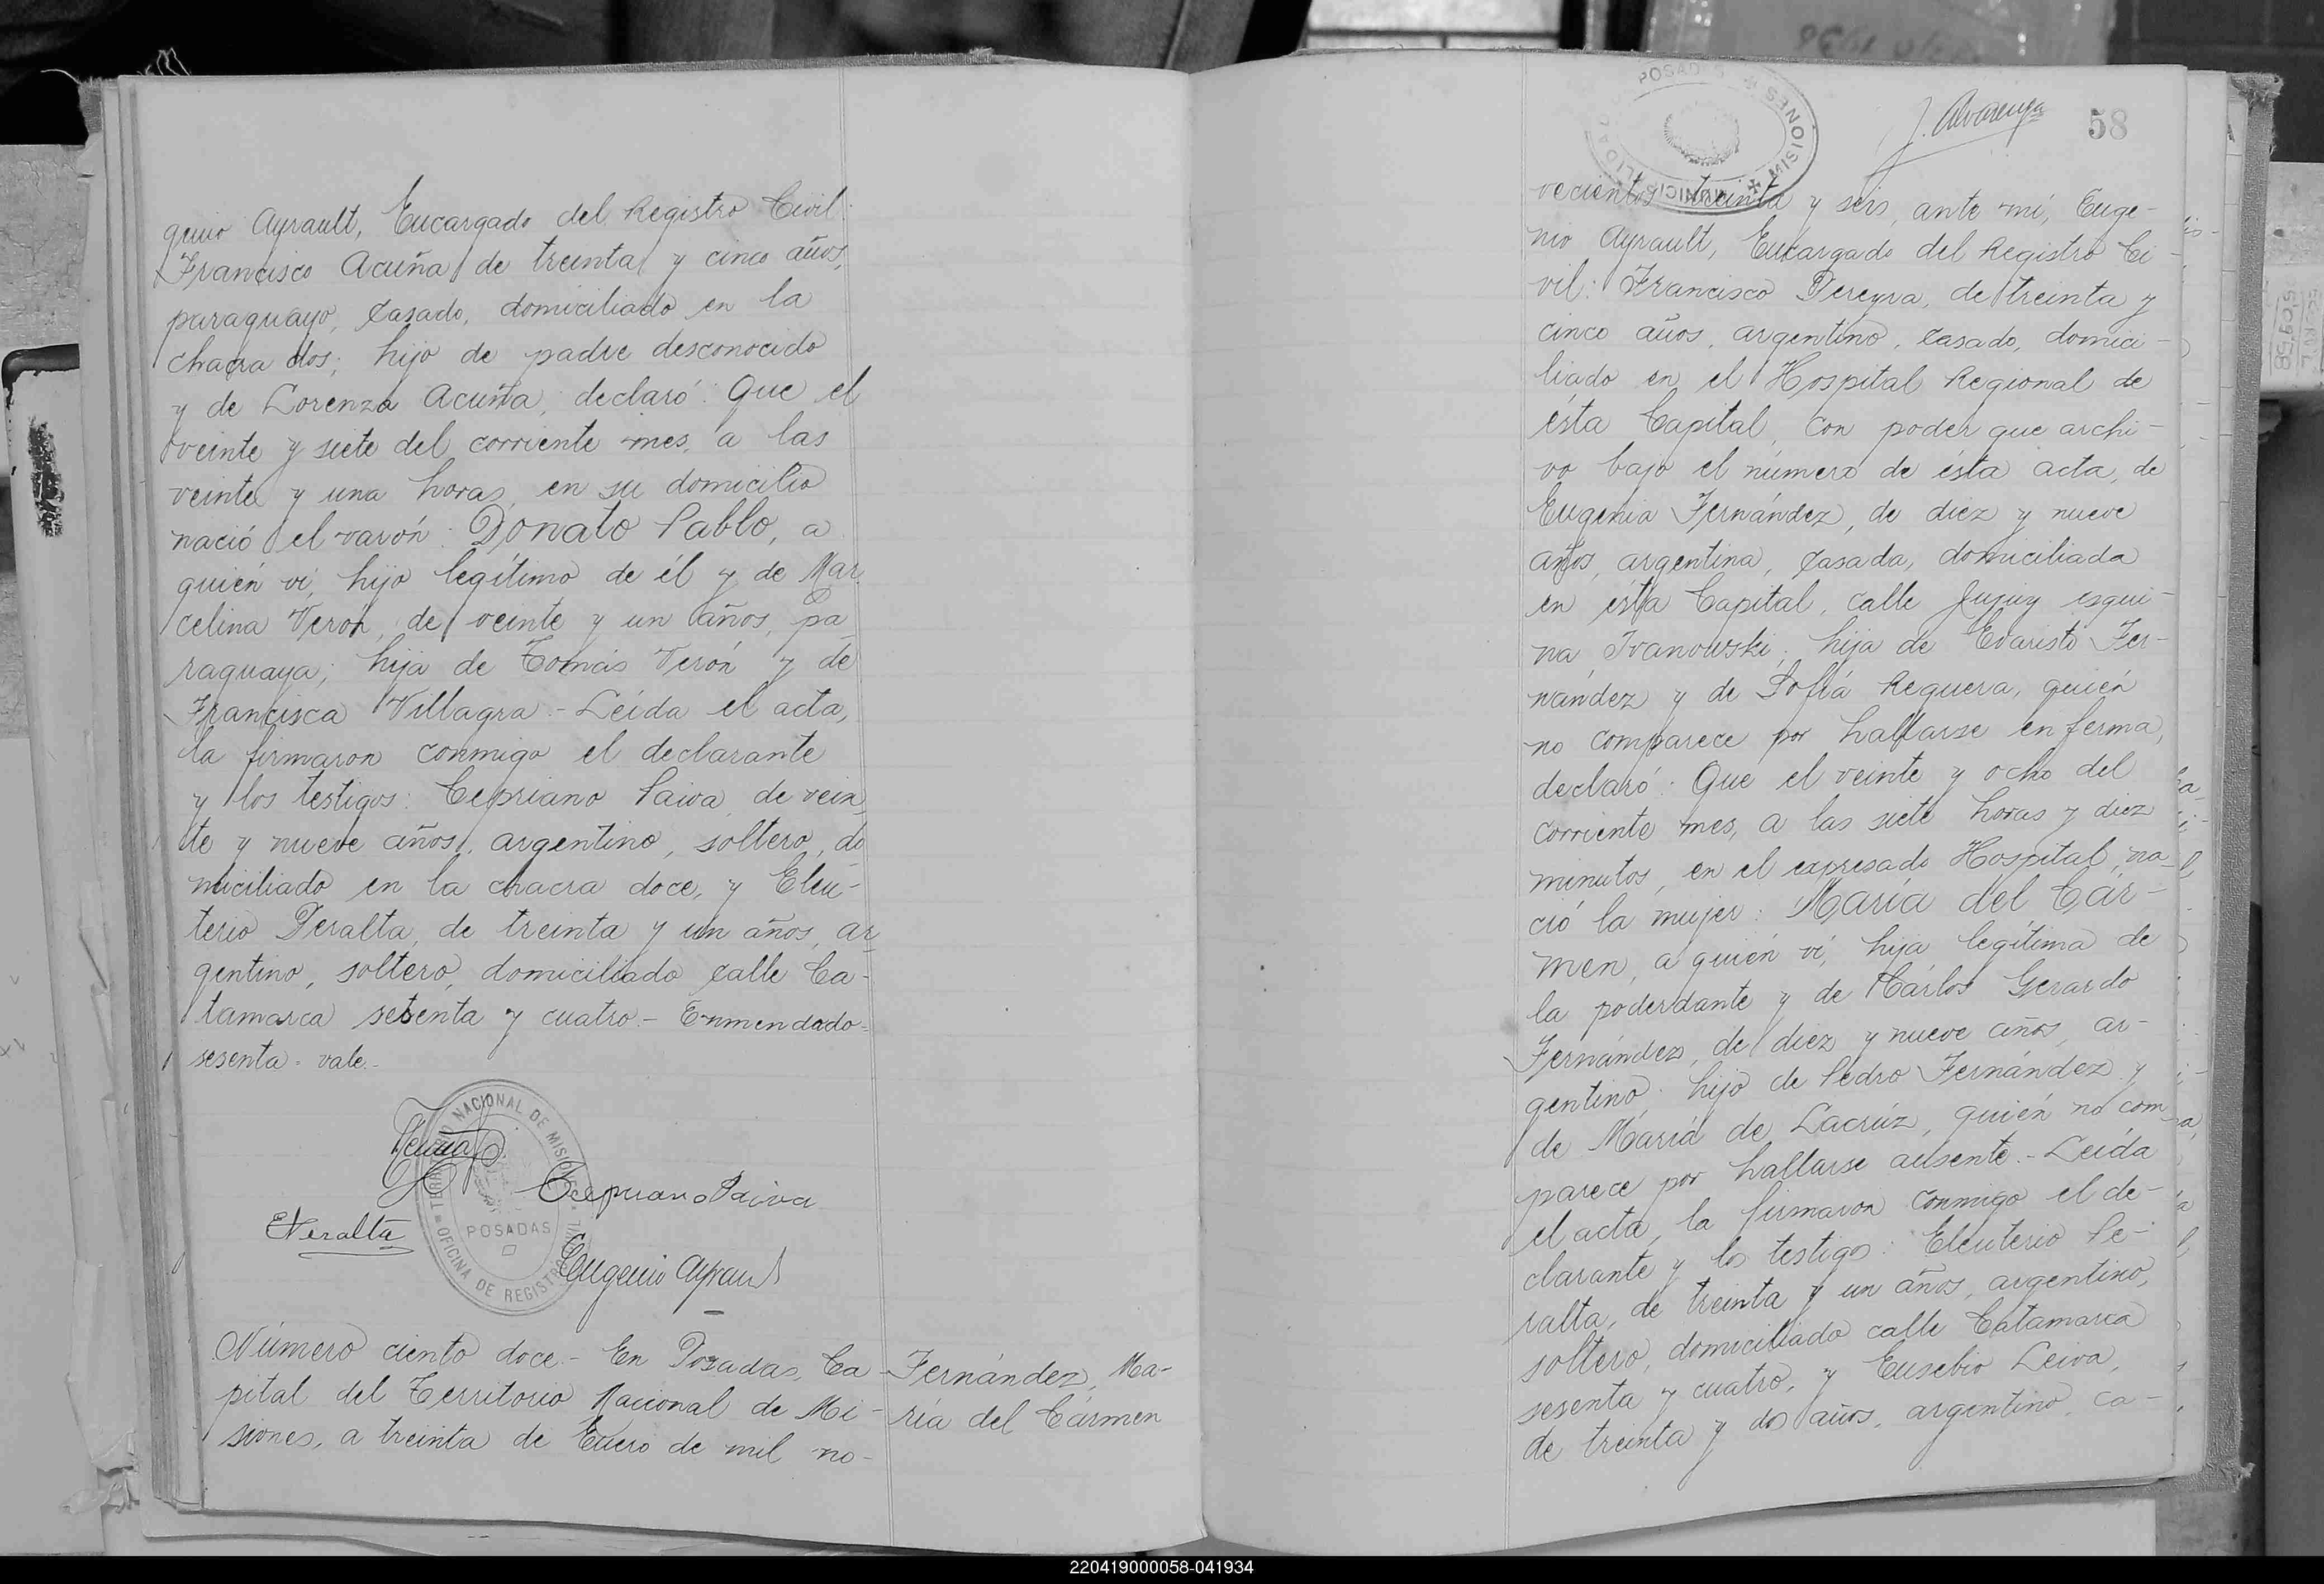 genio Ayrault, Encargado del Registro Civil:
Francisco Acuña de treinta y cinco años,
paraguayo, casado, domiciliado en la
chacra dos; hijo de padre desconocido
y de Lorenza Acuña; declaró: Que el
veinte y siete del corriente mes, a las
veinte y una horas, en su domicilio
nació el varón: Donato Pablo, a
quién ví, hijo legítimo de él y de Mar
celina Verón, de veinte y un años, pa
raguaya; hija de Tomás Verón y de
Francisca Villagra.- Leída el acta,
la firmaron conmigo el declarante
y los testigos: Cepriano Paiva, de vein
te y nueve años, argentino, soltero, do
miciliado en la chacra doce, y Eleu-
terio Peralta, de treinta y un años, ar
gentino, soltero, domiciliado calle Ca-
tamarca sesenta y cuatro.- Enmendado=
sesenta= vale.-
Acuña
Cepriano Paiva
EPeralta
Eugenio Ayrault
TERRITORIO NACIONAL DE MISIONES
POSADAS
OFICINA DE REGISTRO CIVIL
Número ciento doce.- En Posadas, Ca-
pital del Territorio Nacional de Mi-
siones, a treinta de Enero de mil no-
Fernández, Ma-
ría del Cármen
POSADAS MISIONES
MUNICIPALIDAD
J. Alvarenga
58
vecientos treinta y seis, ante mí, Euge-
nio Ayrault, Encargado del Registro Ci-
vil: Francisco Pereyra, de treinta y
cinco años, argentino, casado, domici-
liado en el Hospital Regional de
ésta Capital, con poder que archi-
vo bajo el número de ésta acta, de
Eugenia Fernández, de diez y nueve
años, argentina, casada, domiciliada
en ésta Capital, calle Jujuy esqui-
na Ivanowski; hija de Evaristo Fer-
nández y de Sofía Requera, quién
no comparece por hallarse enferma,
declaró: Que el veinte y ocho del
corriente mes, a las siete horas y diez
minutos, en el expresado Hospital, na-
ció la mujer: María del Cár-
men, a quién ví, hija legítima de
la poderdante y de Cárlos Gerardo
Fernández, de diez y nueve años, ar-
gentino; hijo de Pedro Fernández y
de María de Lacrúz, quién no com-
parece por hallarse ausente.- Leída
el acta, la firmaron conmigo el de-
clarante y los testigos: Eleuterio Pe-
ralta, de treinta y un años, argentino,
soltero, domiciliado calle Catamarca
sesenta y cuatro, y Eusebio Leiva,
de treinta y dos años, argentino, ca-
220419000058-041934